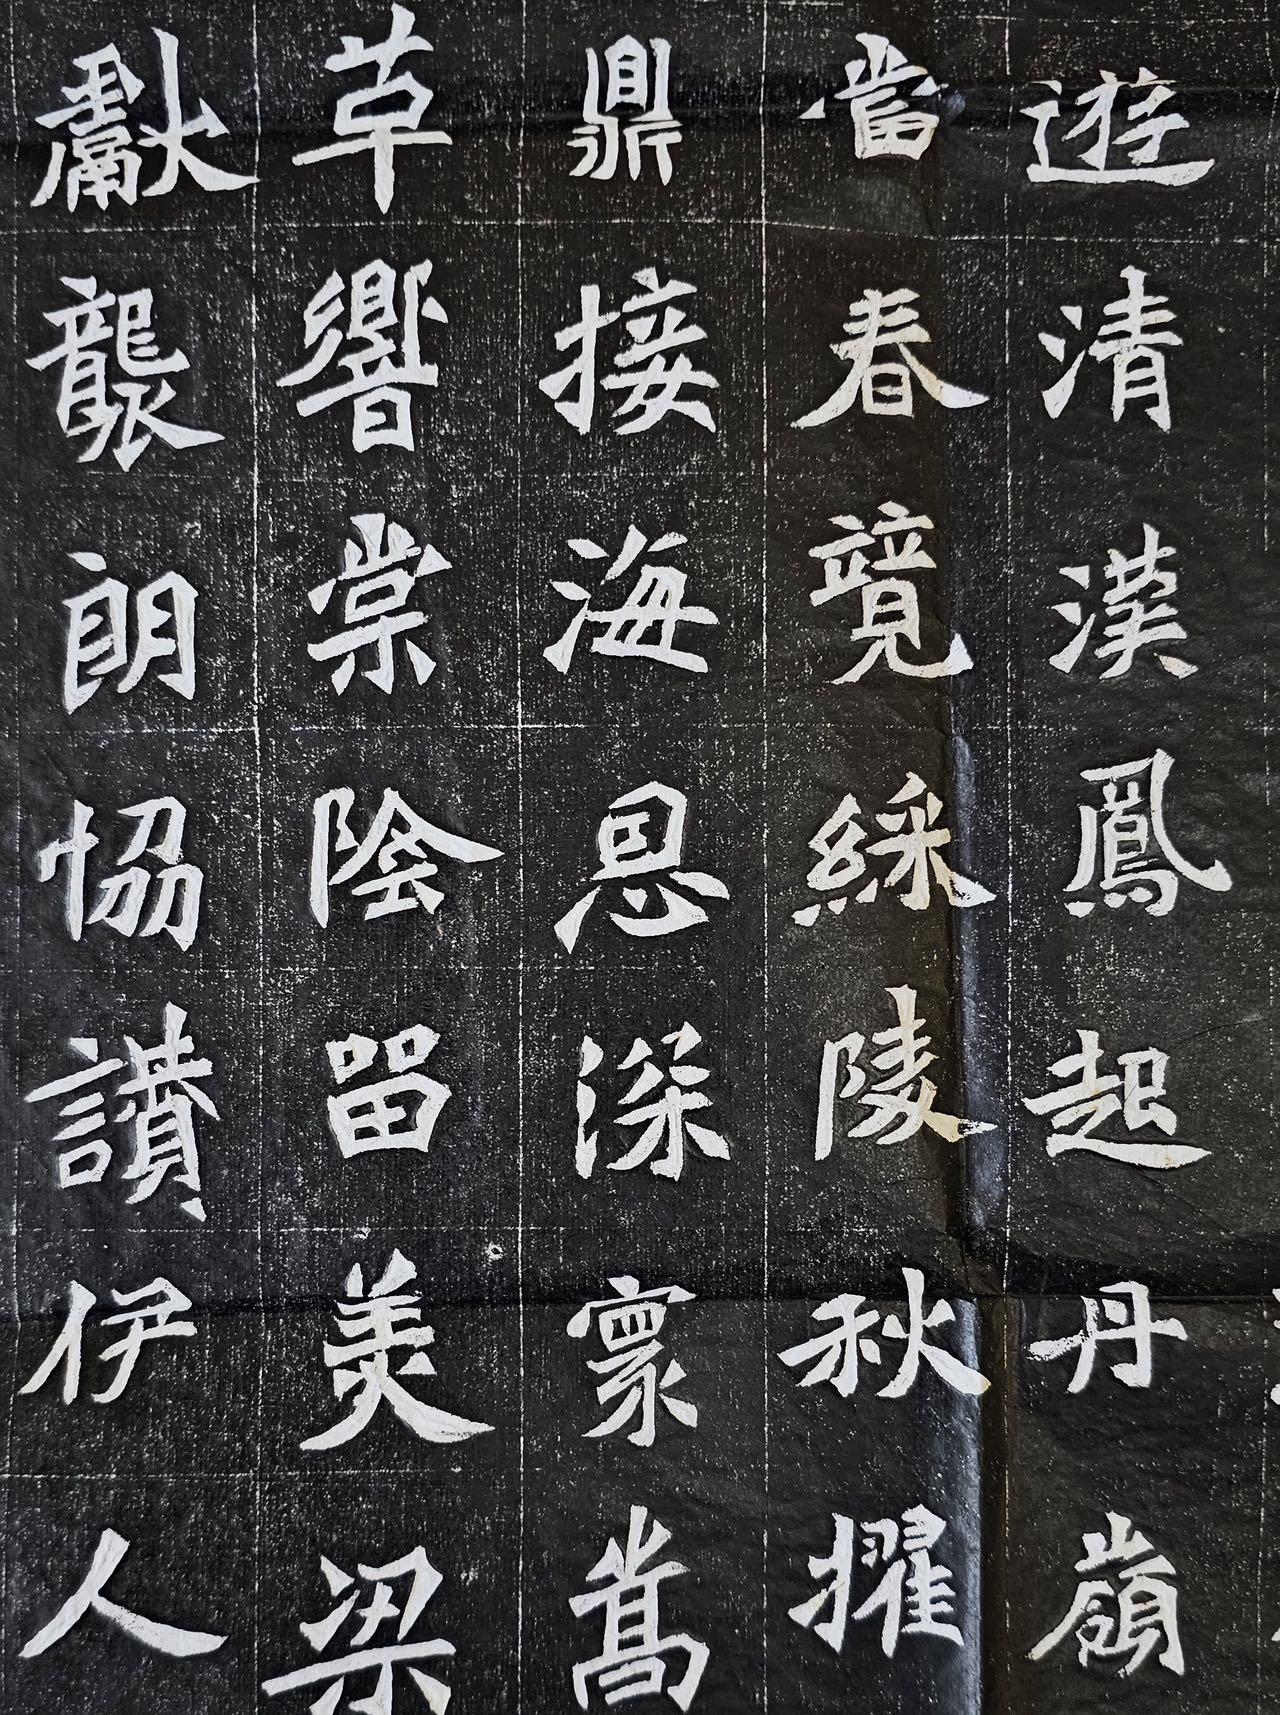 遊清漢鳳起丹嶺
當春競綵陵秋擢
鼎接海恩深寡嵩
草響棠陰留美梁
獻襲朗恊讚伊人